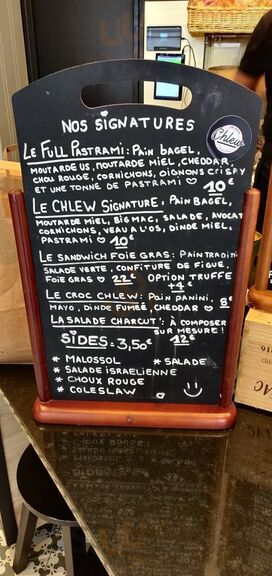 NOS SIGNATURES
Chlew
LE FULL PASTRAMI : PAIN BAGEL,
MOUTARDE US, MOUTARDE MIEL, CHEDDAR,
CHOU ROUGE, CORNICHONS, OIGNONS CRISPY
ET UNE TONNE DE PASTRAMI ♡ 10€
LE CHLEW SIGNATURE : PAIN BAGEL,
MOUTARDE MIEL, BIG MAC, SALADE, AVOCAT
CORNICHONS, VEAU A L'OS, DINDE MIEL,
PASTRAMI ♡ 10€
LE SANDWICH FOIE GRAS : PAIN TRADITI
SALADE VERTE, CONFITURE DE FIGUE,
FOIE GRAS ♡ 22€ OPTION TRUFFE
+4€
LE CROC CHLEW : PAIN PANINI, 8€
MAYO, DINDE FUMÉE, CHEDDAR ♡
LA SALADE CHARCUT' : À COMPOSER
SUR MESURE !
SIDES : 3,50€ 12€
* MALOSSOL * SALADE
* SALADE ISRAELIENNE
* CHOUX ROUGE
* COLESLAW